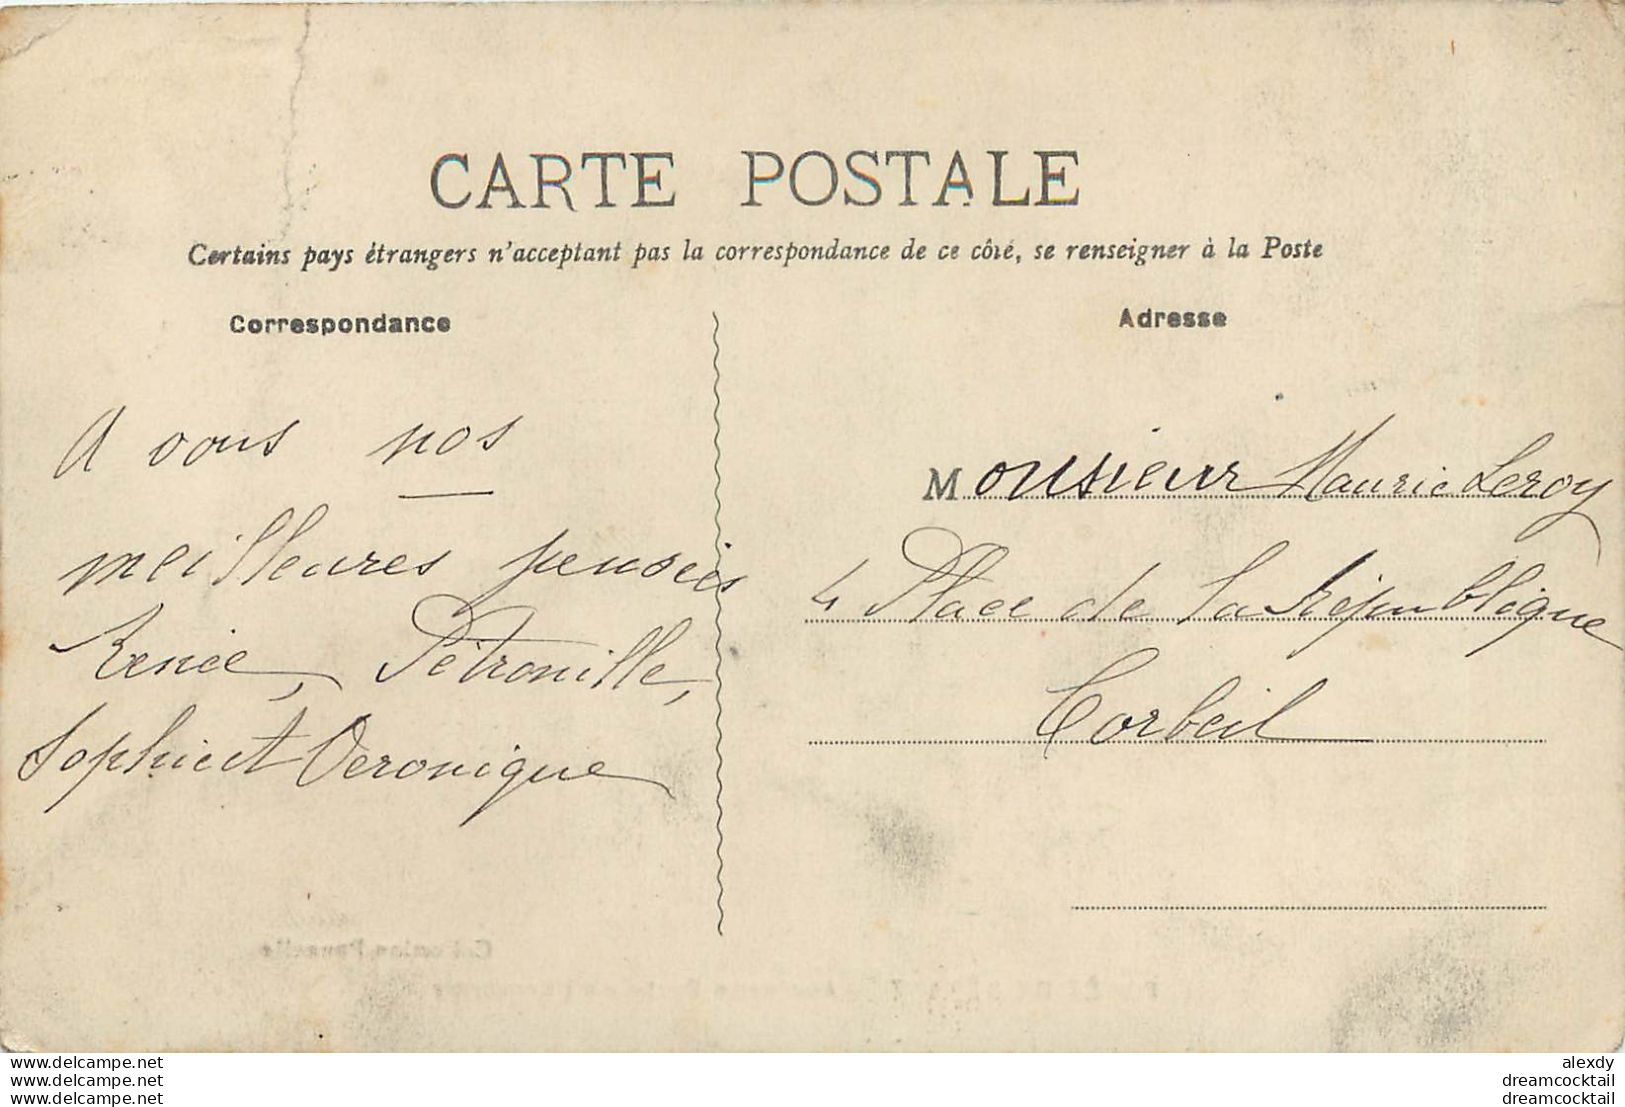 CARTE POSTALE
Certains pays étrangers n'acceptant pas la correspondance de ce côté, se renseigner à la Poste
Correspondance
A vous nos
meilleures pensées
Renée, Pétronille,
Sophie et Veronique
Adresse
Monsieur Mauric Leroy
4 Place de la République
Corbeil
www.delcampe.net
www.delcampe.net
www.delcampe.net
alexdy
dreamcocktail
dreamcocktail